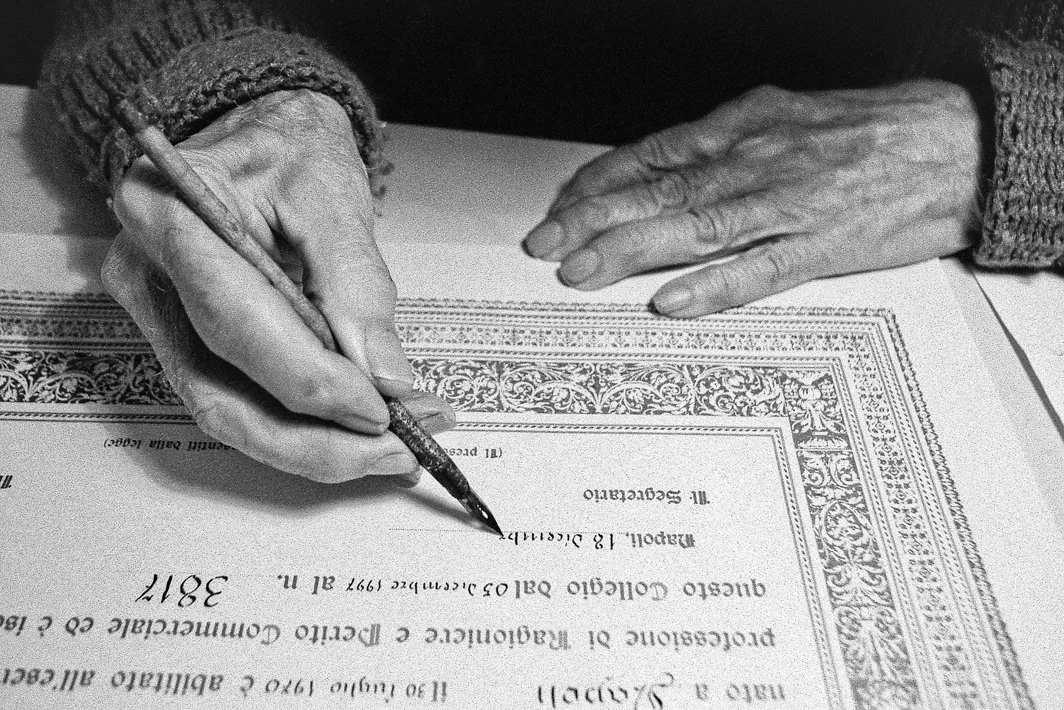 nato a Napoli il 30 luglio 1970 è abilitato all'eser
professione di Ragioniere e Perito Commerciale ed è isc
questo Collegio dal 05 dicembre 1997 al n. 3817
Napoli, 18 dicembr
Il Segretario Il
(Il prese entiti dalla legge)